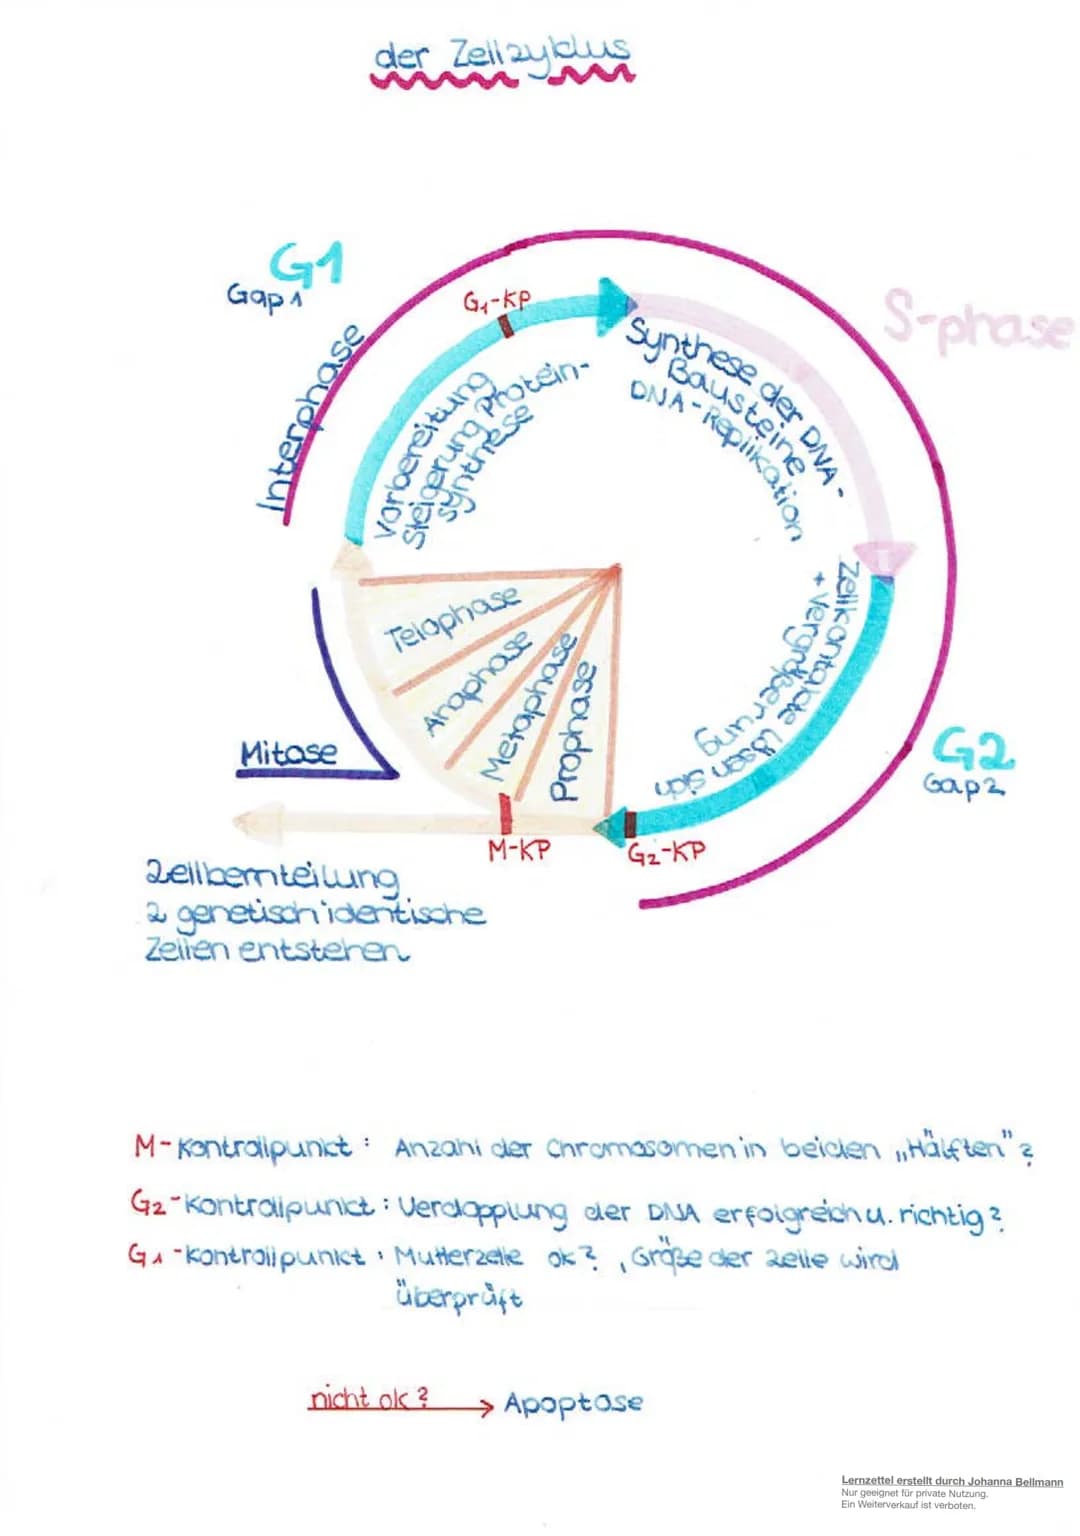 der Zellzyklus
G1
Gap 1
Interphase
G1-KP
Vorbereitung
Steigerung Protein-
synthese
S-phase
Synthese der DNA-
Bausteine
DNA-Replikation
Zellkontakte lösen sich
+ Vergrößerung
G2
Gap 2
G2-KP
Telophase
Anaphase
Metaphase
Prophase
Mitose
M-KP
Zellkernteilung
2 genetisch identische
Zellen entstehen
M-Kontrollpunkt: Anzahl der Chromosomen in beiden „Hälften"?
G2-Kontrollpunkt: Verdopplung der DNA erfolgreich u. richtig?
G1-Kontrollpunkt: Mutterzelle ok?, Größe der Zelle wird
überprüft
nicht ok? → Apoptose
Lernzettel erstellt durch Johanna Bellmann
Nur geeignet für private Nutzung.
Ein Weiterverkauf ist verboten.